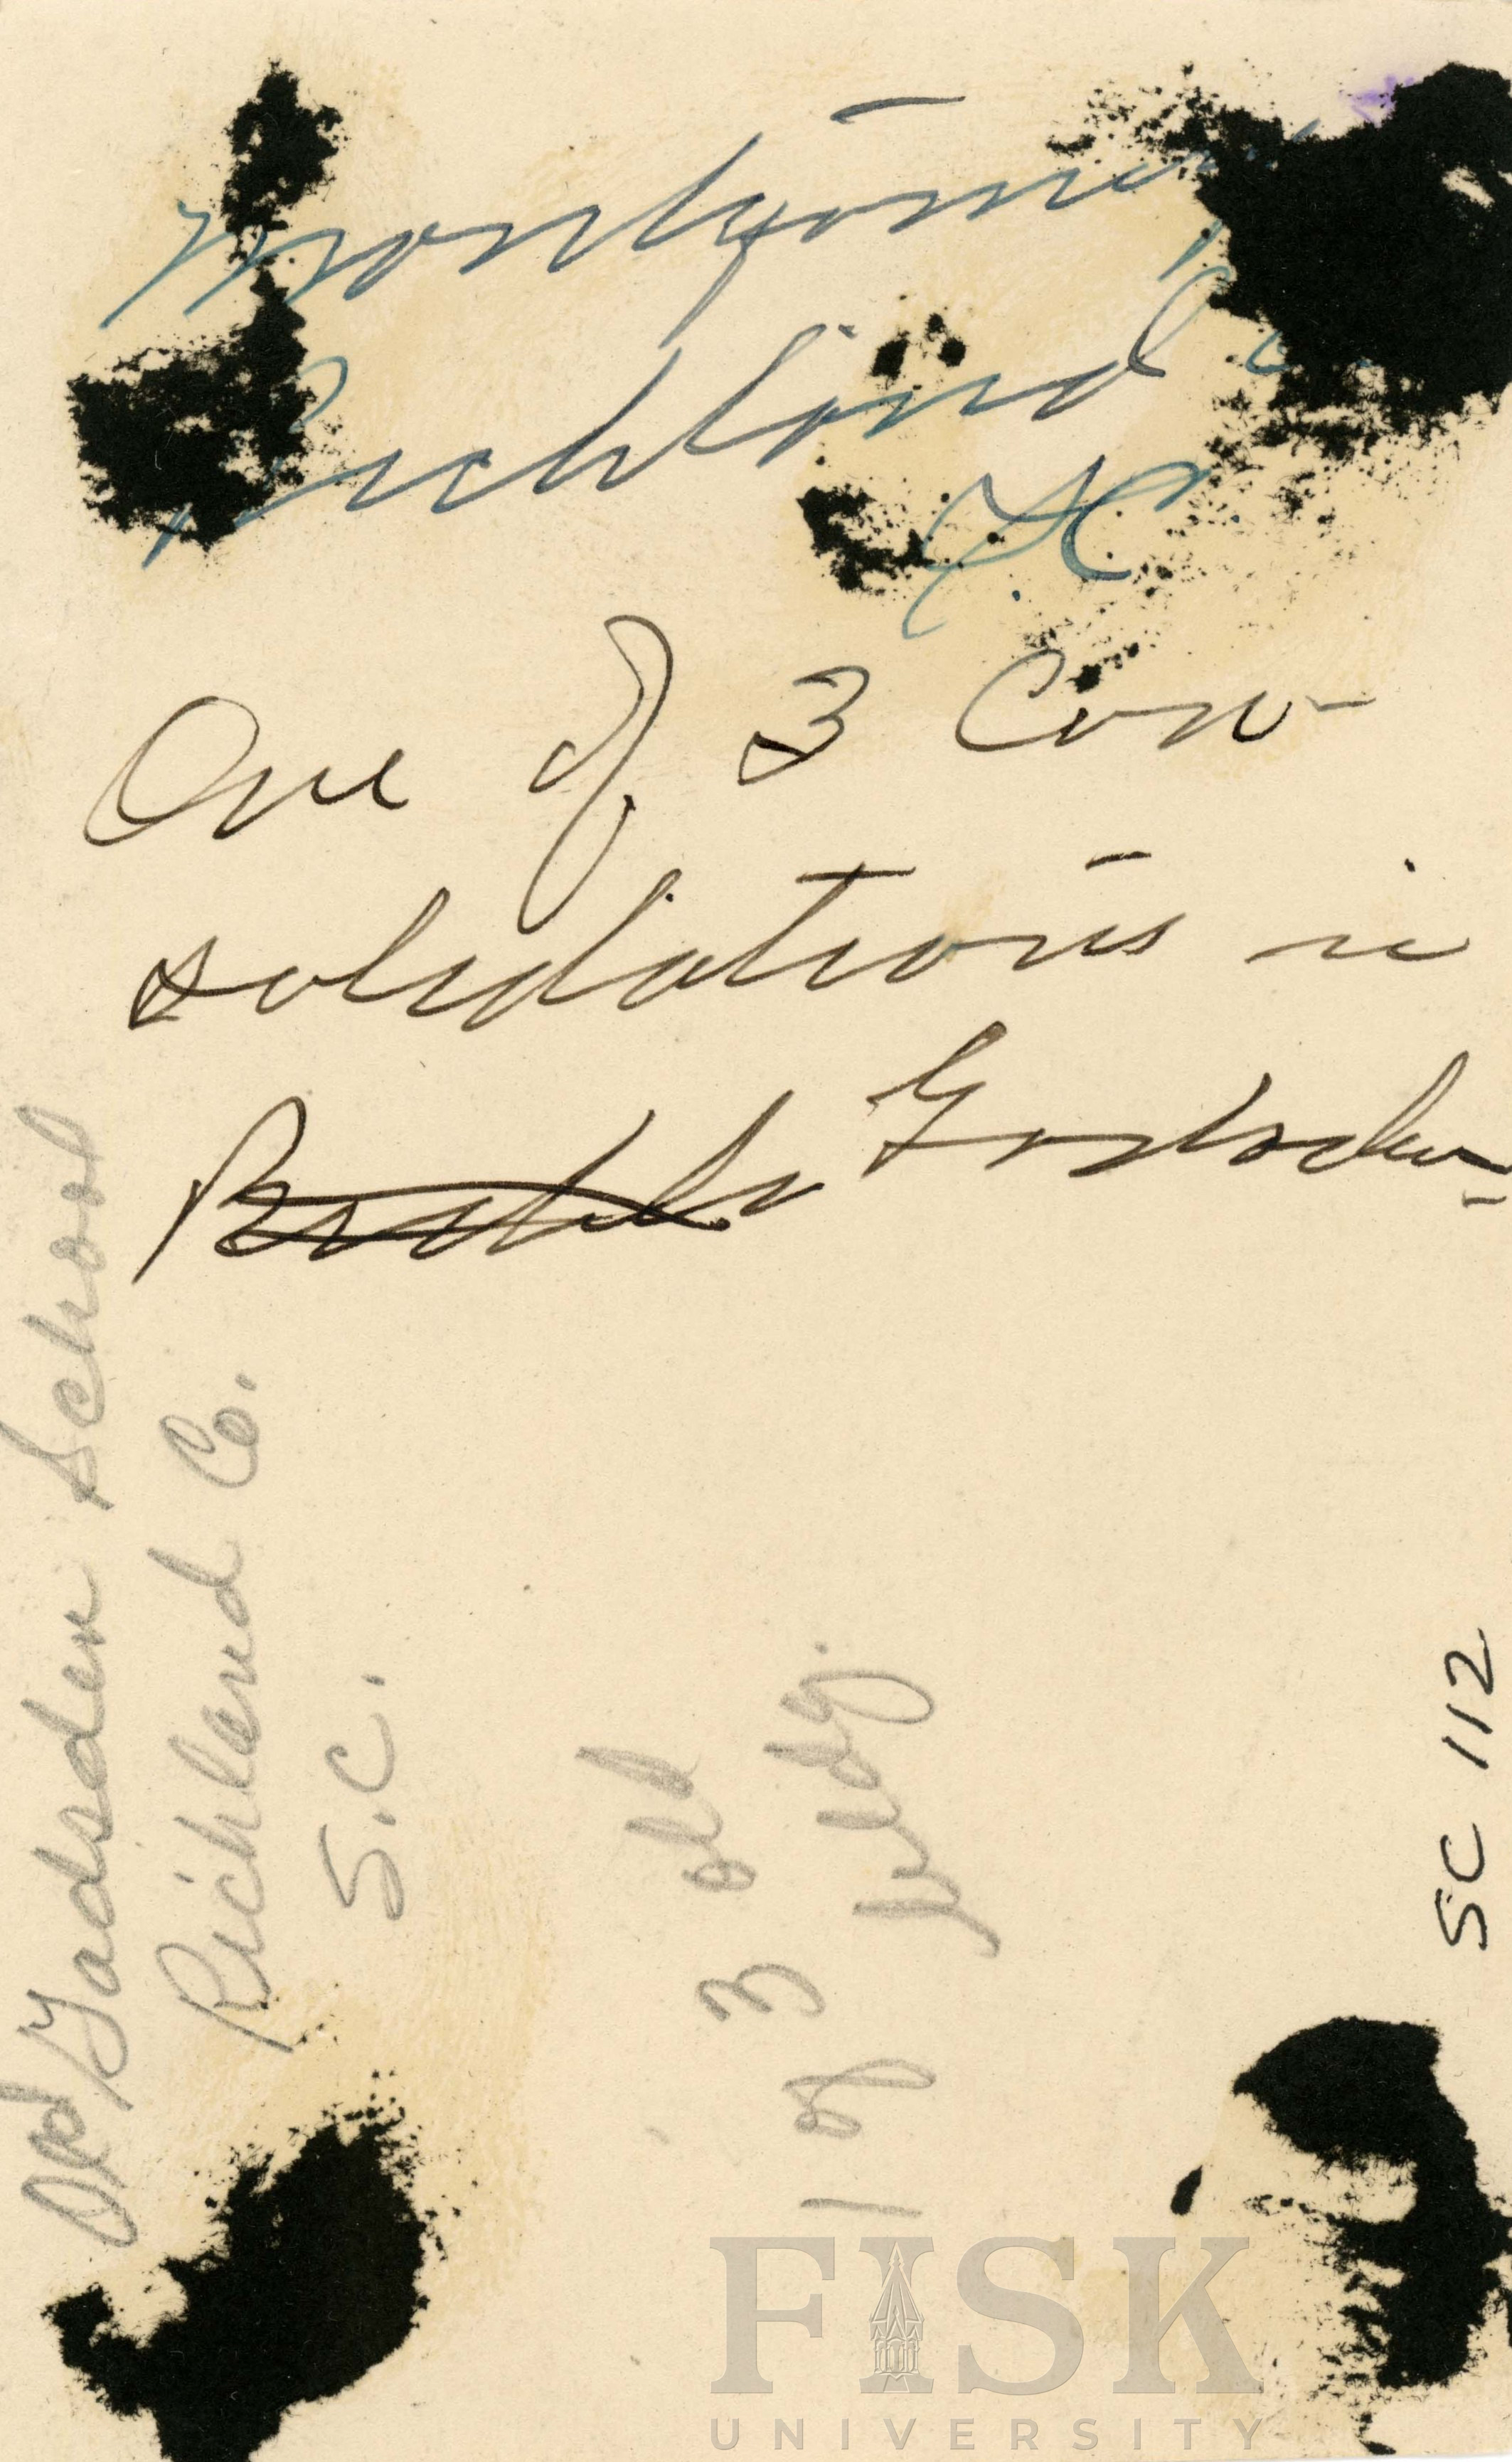 Montgomery
Richland
SC
One of 3 Con-
solidations in
Gadsden
Old Gadsden School
Richland Co.
S.C.
1 of 3 old
bldg.
SC 112
FISK
UNIVERSITY